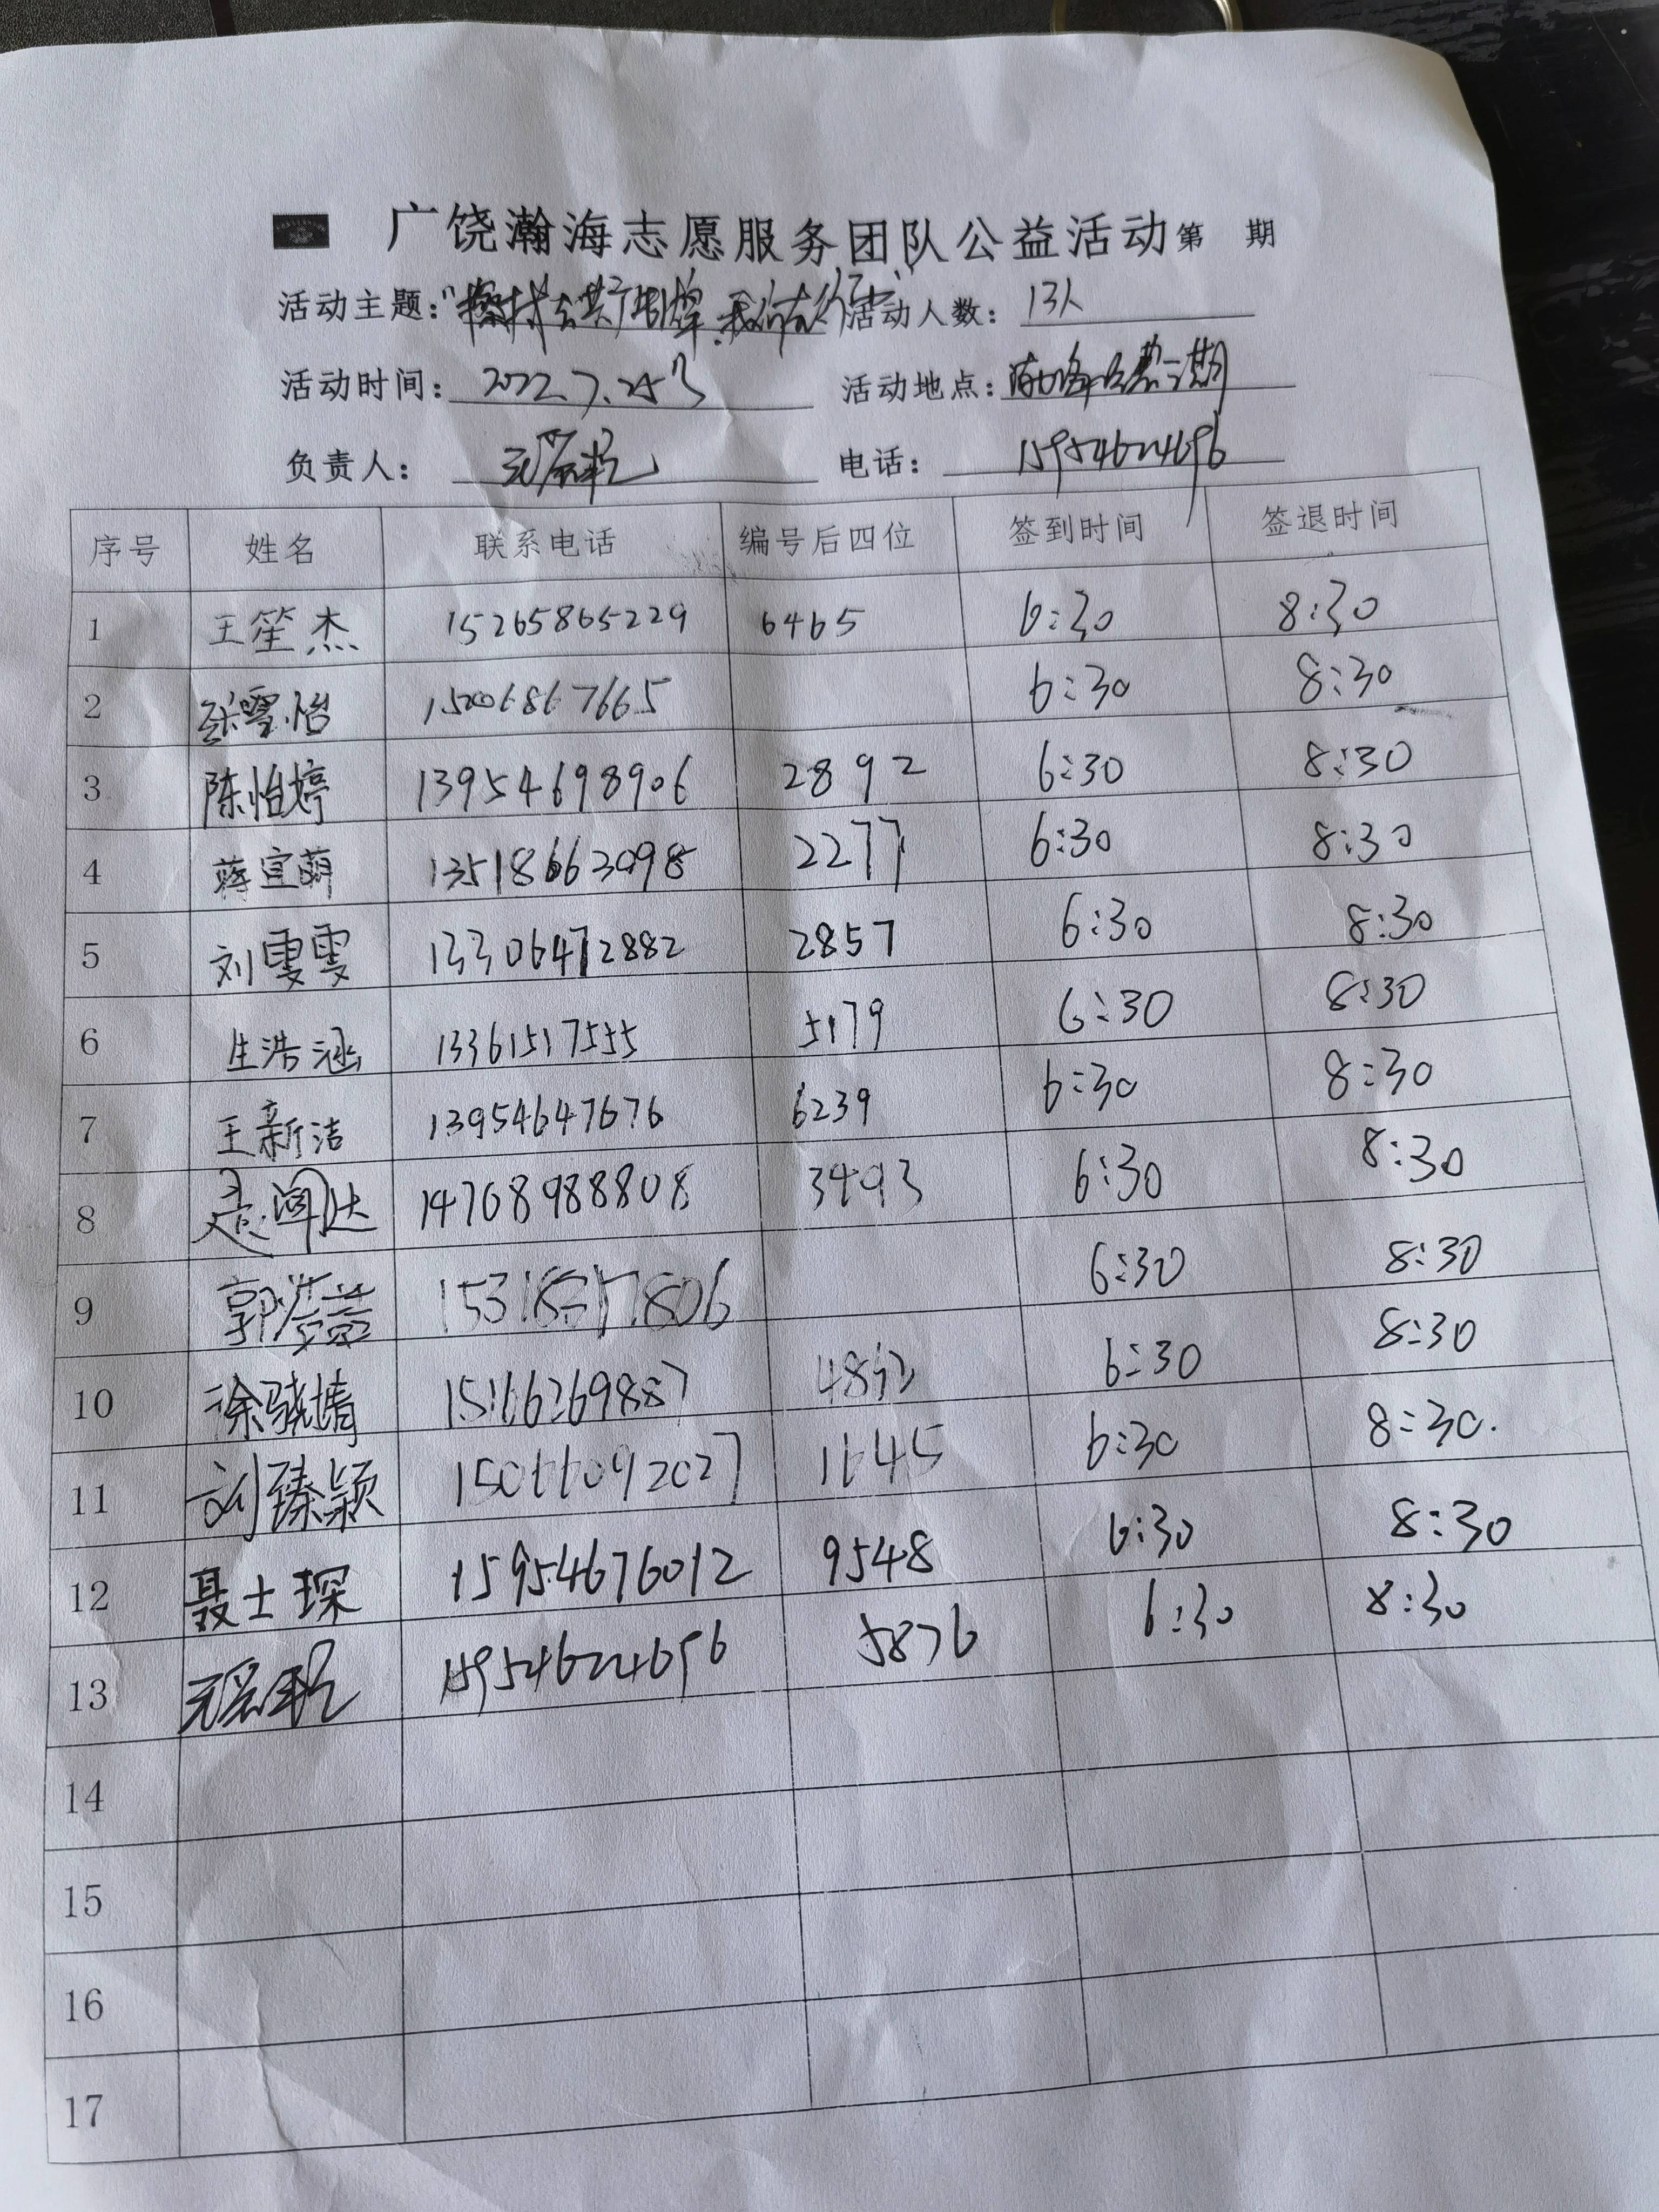 广饶瀚海志愿服务团队公益活动第 期
活动主题： 活动人数：13人
活动时间：2022.7.25 活动地点：
负责人： 电话：15954624696
序号 姓名 联系电话 编号后四位 签到时间 签退时间
1 王笙杰 15265865229 6465 6:30 8:30
2 张雯怡 15006867665 6:30 8:30
3 陈怡婷 13954698906 2892 6:30 8:30
4 蒋宜萌 13518663098 2277 6:30 8:30
5 刘雯雯 13306472882 2857 6:30 8:30
6 生浩涵 13361517555 5179 6:30 8:30
7 王新洁 13954647676 6239 6:30 8:30
8 14768988808 3493 6:30 8:30
9 6:30 8:30
10 徐骁婧 15116269887 6:30 8:30
11 刘臻颖 15066092027 1645 6:30 8:30.
12 聂士琛 15954676012 9548 6:30 8:30
13 15954624696 5876 6:30 8:30
14
15
16
17